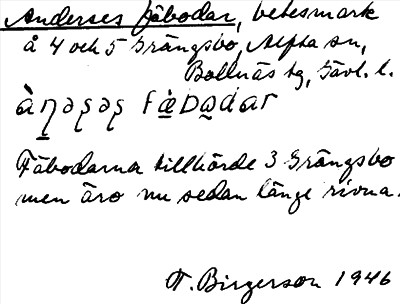 Anderses fäbodar, betesmark
å 4 och 5 Grängsbo, Alfta sn,
Bollnäs tg, Gävl. l.
Fäbodarna tillhörde 3 Grängsbo
men äro nu sedan länge rivna.
F. Birgerson 1946